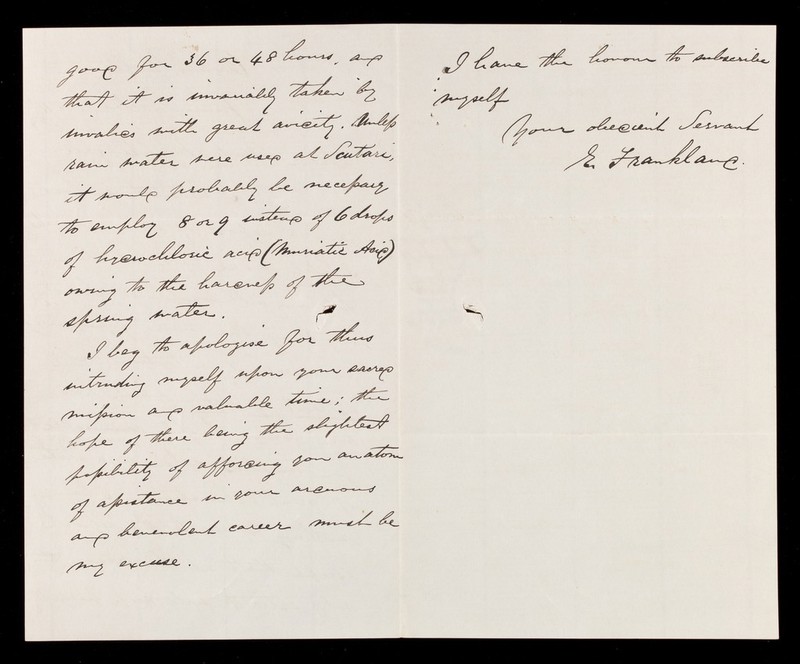 good for 36 or 48 hours, and
that it is invariably taken by
invalids with great avidity. Unless
rain water were used at Scutari,
it would probably be necessary
to employ 8 or 9 instead of 6 drops
of hydrochloric acid (Muriatic Acid)
owing to the hardness of the
spring water.
I beg to apologise for thus
intruding myself upon your sacred
mission and valuable time; the
hope of there being the slightest
possibility of affording you an atom
of assistance in your arduous
and benevolent career must be
my excuse.
I have the honour to subscribe
myself
Your obedient Servant
E. Frankland.